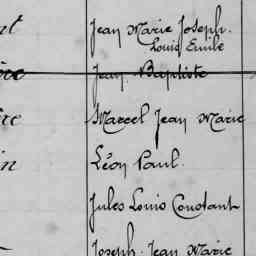 Jean Marie Joseph.
Louis Emile
Jean Baptiste
Marcel Jean Marie
Léon Paul.
Jules Louis Constant
Joseph Jean Marie